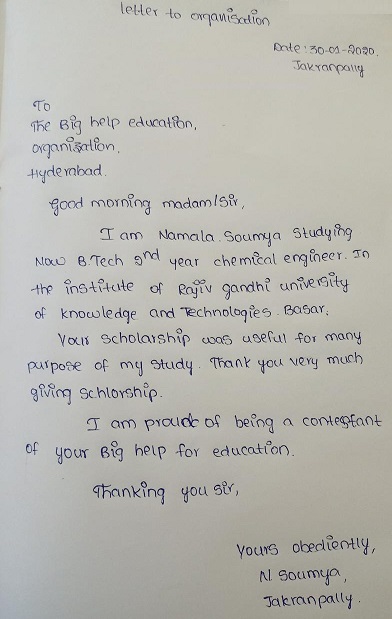 letter to organisation
Date: 30-01-2020.
Jakranpally
To
The Big help education,
organisation,
Hyderabad.
Good morning madam/sir,
I am Namala. Soumya Studying
Now B.Tech 2nd year chemical engineer. In
the institute of Rajiv gandhi university
of knowledge and Technologies. Basar.
Your Scholarship was useful for many
purpose of my study. Thank you very much
giving Schlorship.
I am proud of being a contestant
of your Big help for education.
Thanking you sir,
Yours obediently,
N. Soumya,
Jakranpally.